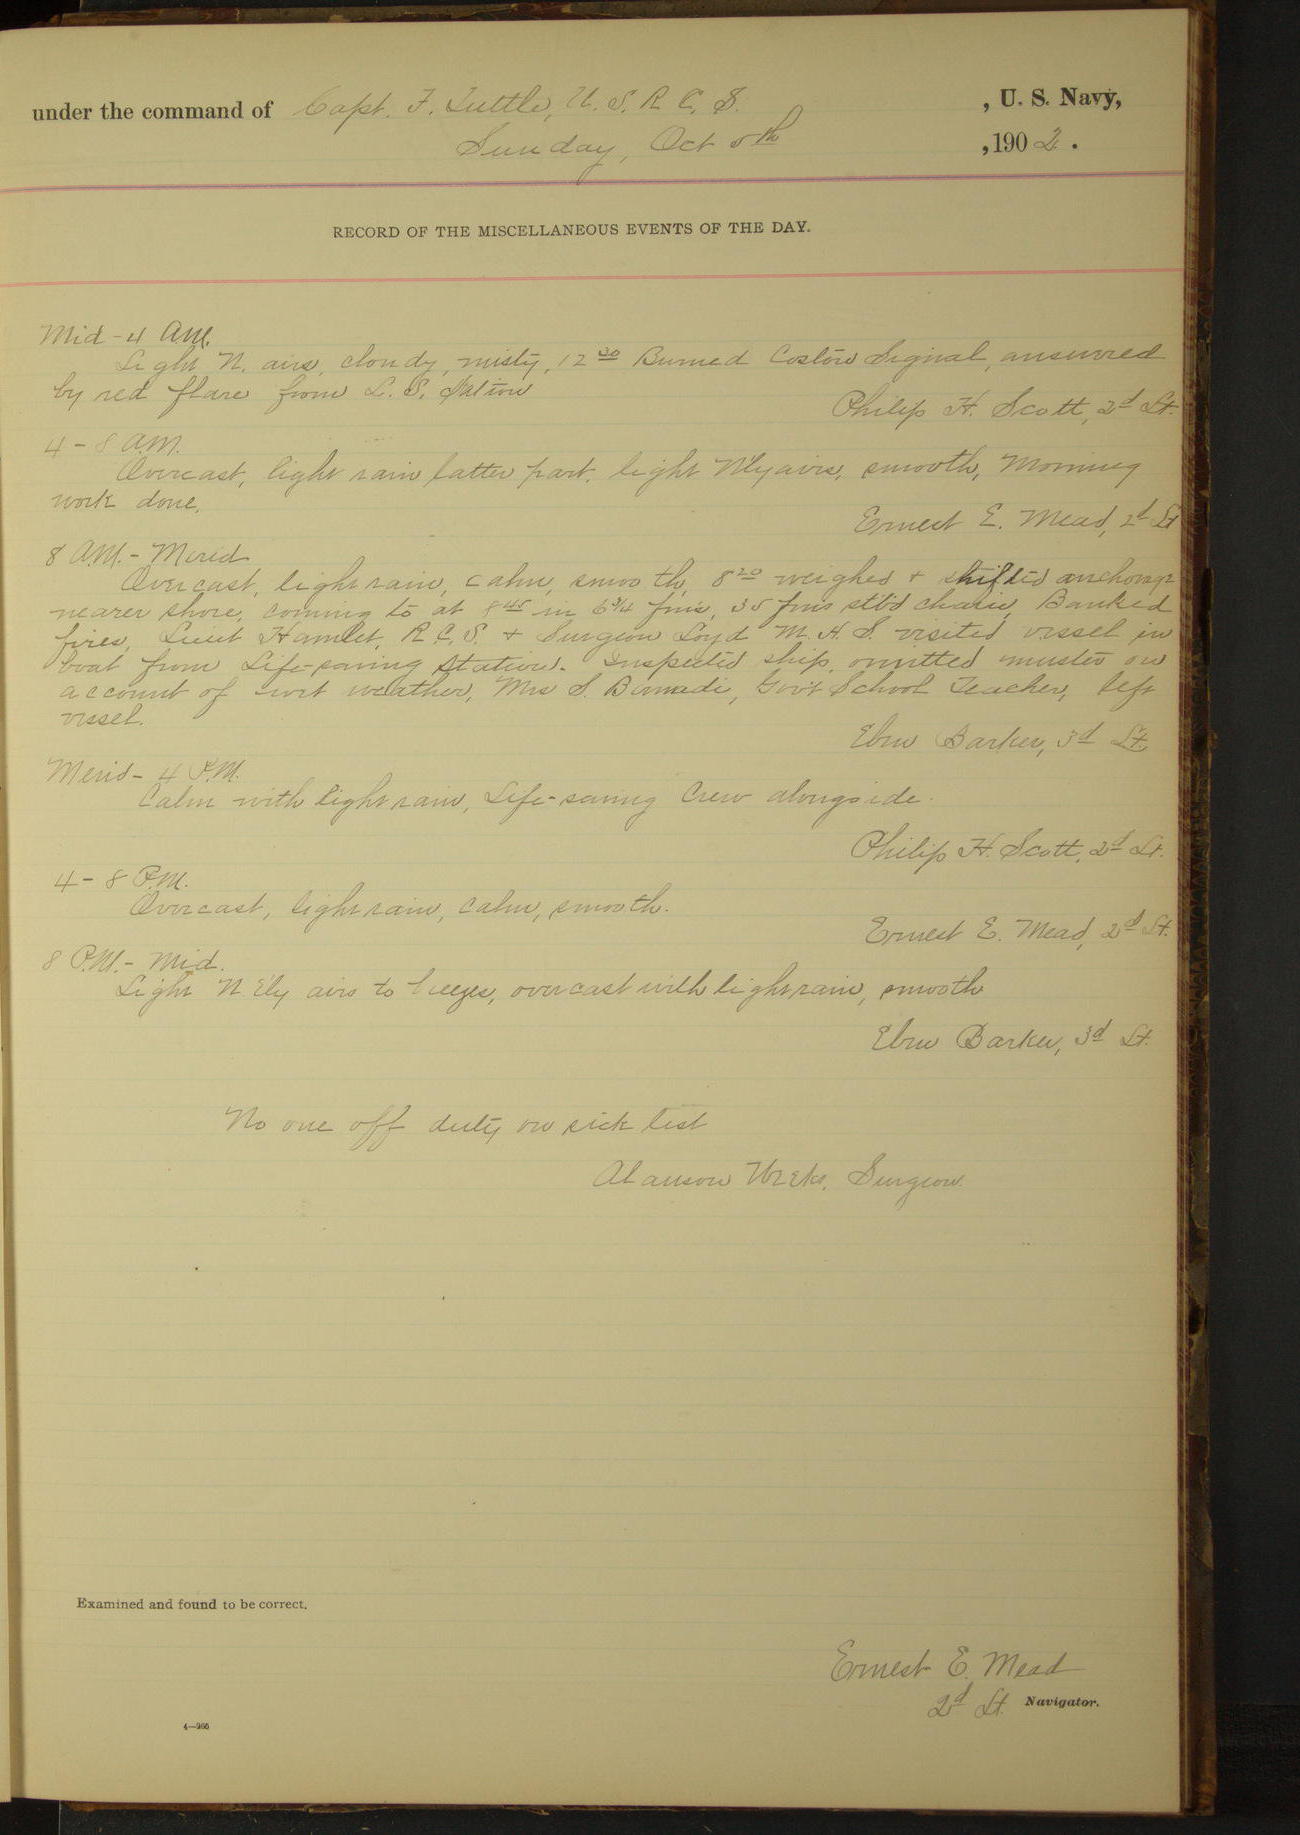 under the command of Capt. F. Tuttle, U. S. R. C. S. , U. S. Navy,
Sunday, Oct 5th ,1902.
RECORD OF THE MISCELLANEOUS EVENTS OF THE DAY.
Mid - 4 AM.
Light N. airs, cloudy, misty, 12 30 Burned Coston Signal, answered
by red flare from L. S. Station
Philip H. Scott, 2d Lt.
4 - 8 A.M.
Overcast, light rain latter part, light N'ly airs, smooth, Morning
work done.
Ernest E. Mead, 2d Lt
8 A.M. - Merid
Overcast, light rain, calm, smooth, 8 20 weighed + shifted anchorage
nearer shore, coming to at 8 45 in 6 3/4 fms, 35 fms stb'd chain, Banked
fires, Lieut Hamlet, R. C. S. + Surgeon Loyd M. H. S. visited vessel in
boat from Life-saving Station. Inspected ship, omitted muster on
account of wet weather, Mrs S. Gov't School Teacher, left
vessel.
Eben Barker, 3d Lt.
Merid - 4 P.M.
Calm with light rain, Life-saving Crew alongside.
Philip H. Scott, 2d Lt.
4 - 8 P.M.
Overcast, light rain, calm, smooth.
Ernest E. Mead, 2d Lt.
8 P.M. - Mid.
Light N E'ly airs to breezes, overcast with light rain, smooth
Eben Barker, 3d Lt.
No one off duty on sick list
Alanson Weeks, Surgeon.
Examined and found to be correct.
Ernest E. Mead
2d Lt. Navigator.
4—966